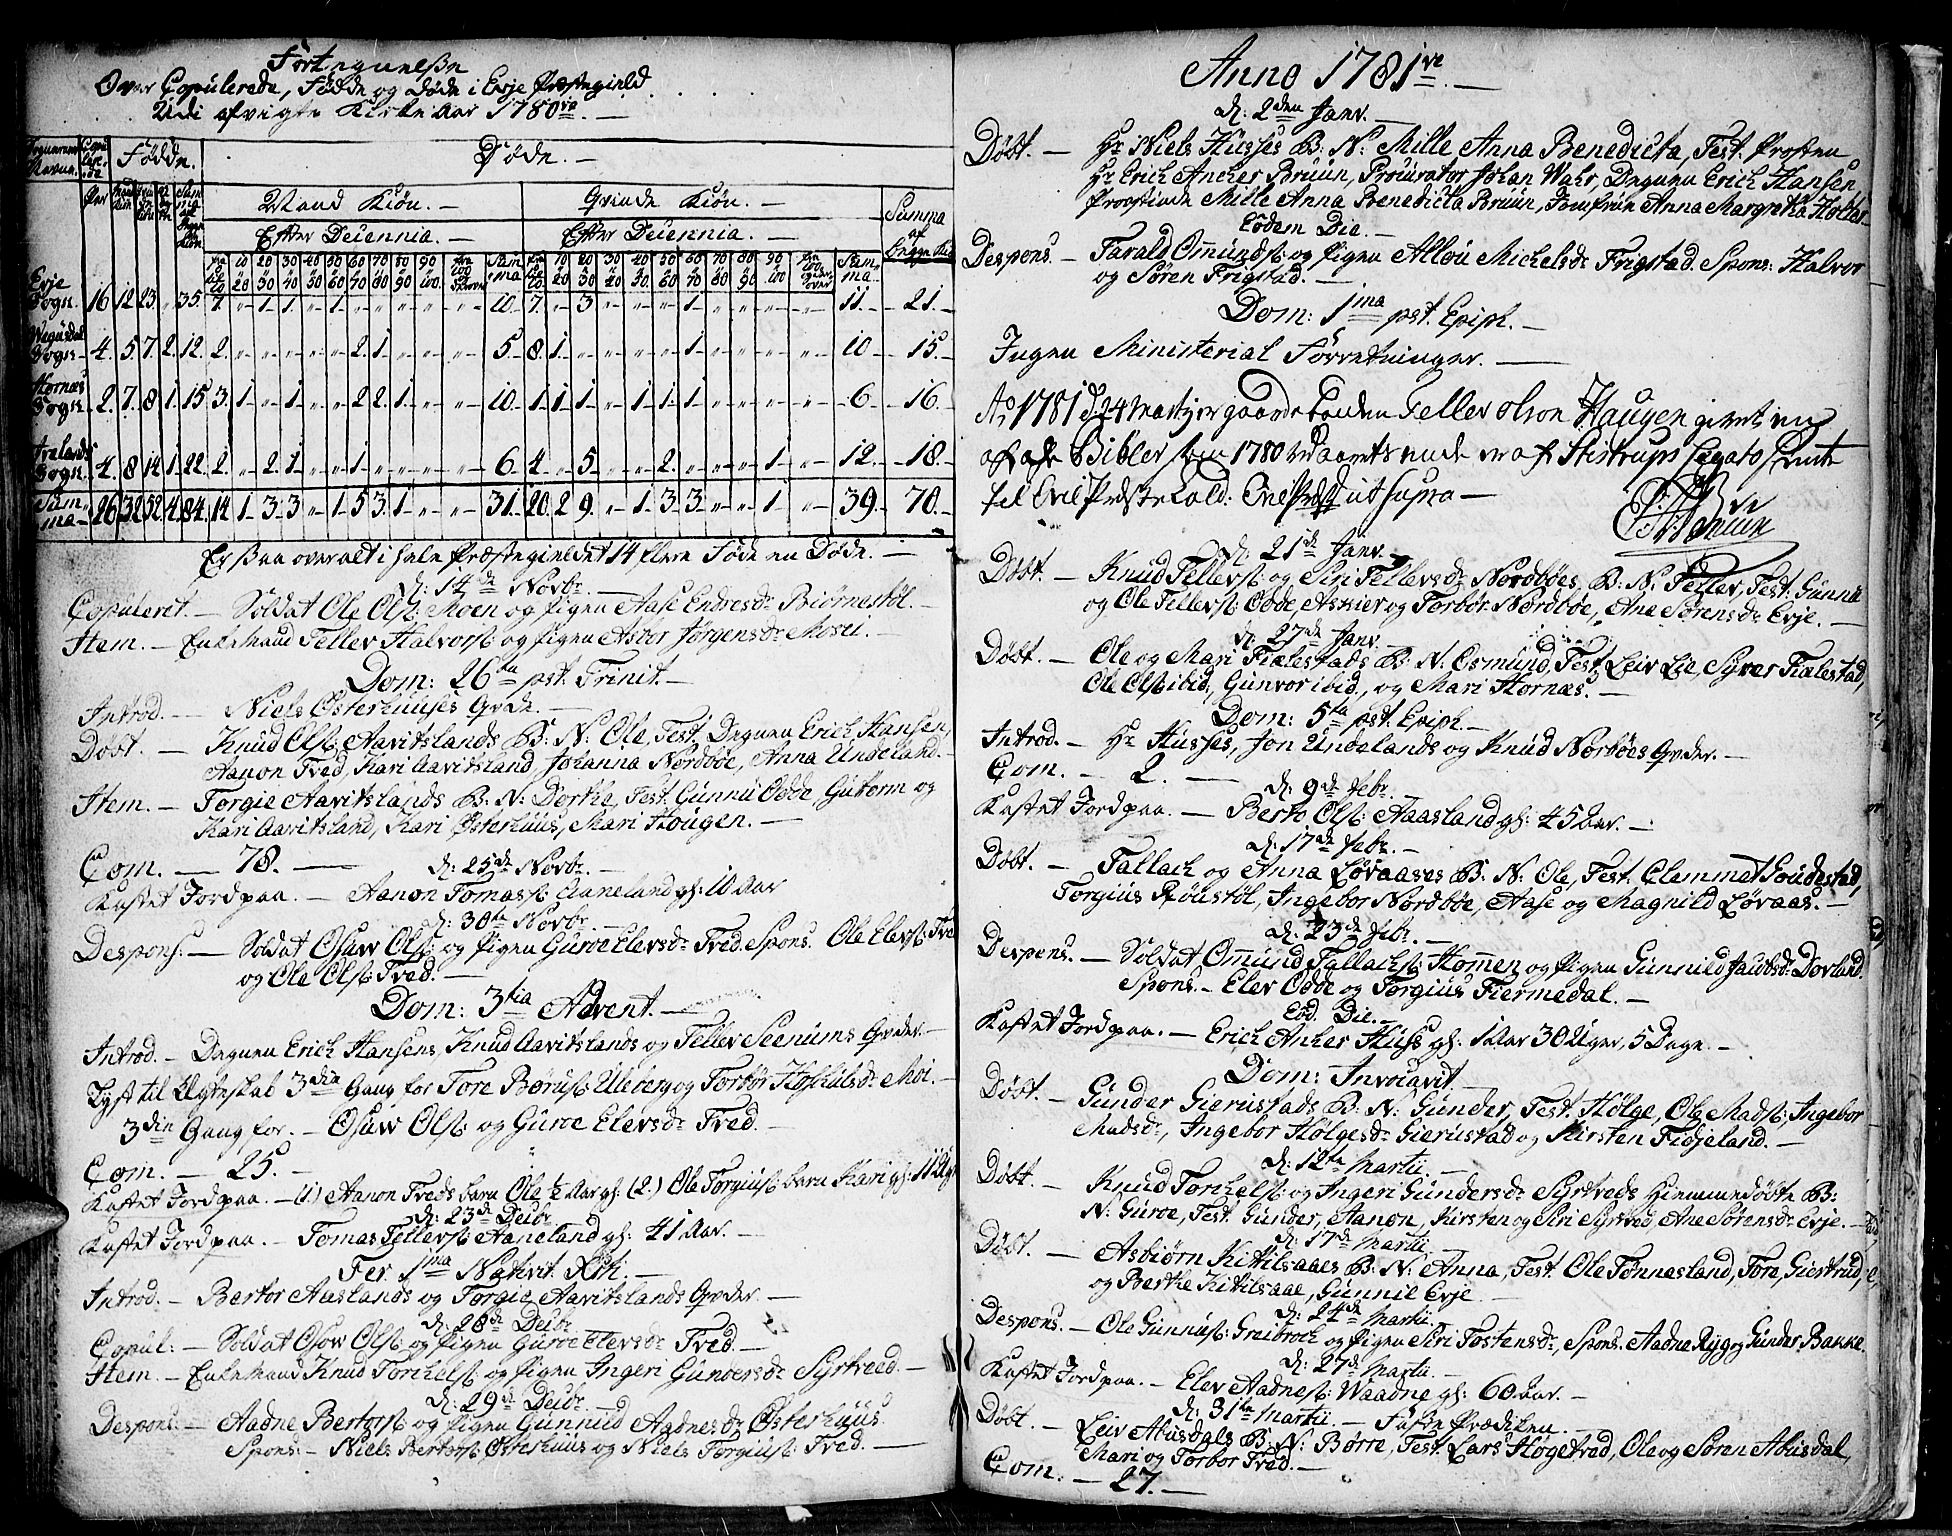 Fortegnelße
Over Copulerede, Fødde og Døde i Evje Præstegield
Udi afvigte Kirke Aar 1780ve. —
Sognernes Navne. Copulerede Fødde. Døde. —
Par Summa af begge Kiøn
Mand Kiøn. — Qvinde Kiøn. — Summa af begge Kiøn
Efter Decennia. — Efter Decennia. —
Evje Sogn. 16 12 23 „ 35 7. „ 1 1 „ 1 „ „ „ „ „ 10 7. „ 3 „ „ „ 1 „ „ „ „ 11 21.
Wegusdal Sogn 4 5 7 2 12 2 „ „ „ „ „ 2 1 „ „ „ 5 8 1 „ „ „ „ 1 „ „ „ „ 10 15.
Hornæs Sogn 2 7 8 1 15 3 1 „ 1 „ „ 2 2 1 „ „ 10 1 1 1 „ 1 1 1 „ „ „ „ 6 16
Iveland Sogn. 4 8 14 1 22 2 „ 2 1 „ „ 1 „ „ „ „ 6 4 „ 5 „ „ 2 „ „ „ 1 „ 12 18
Summa 26 32 52 4 84 14 1 3 3 „ 1 5 3 1 „ „ 31 20 2 9 „ 1 3 3 „ „ 1 „ 39 70
Er ßaa overalt i hele Præstegieldet 14 flere Føde en Døde. —
d: 14de Novbr. —
Copuleret. — Soldat Ole Olsß: Moen og Pigen Aase Endresdr Biørnestøl. —
Item. — Enkemand Tellev Halvorsß: og Pigen Asbor Jørgensdr Mosei. —
Dom: 26ta pst. Trinit. —
Introd. — Niels Østerhuuses Qvde. —
Døbt. — Knud Olsß: Aavitslands B: N: Ole, Test. Degnen Erich Hansen,
Aanon Tved, Kari Aavitsland, Johanna Nordbøe, Anna Undeland. —
Item. — Torgie Aavitslands B: N: Dorthe, Test. Gunnu Odde, Gutorm og
Kari Aavitsland, Kari Østerhuus, Mari Hougen. —
Com. — 78. —
d: 25de Novbr. —
Kastet Jord paa. — Aanon Tomasß: Aaneland gl: 10 Aar
d: 30te Novbr. —
Despons. — Soldat Osuw Olsß: og Pigen Guroe Elevsdr Tved. Spons. Ole Elevsß: Tved
og Ole Olsß: Tved. —
Dom: 3tia Advent. —
Introd. — Degnen Erich Hansens, Knud Aavitslands og Tellev Seenums Qvder. —
Lyst til Ægteskab 3die Gang for Tore Børusß: Uleberg og Torbør Høskulsdr Moi. —
3die Gang for. — Osuw Olsß: og Guroe Elevsdr Tved. —
Com. — 25. —
Kastet Jord paa. — (1.) Aanon Tveds barn Ole 1/2 Aar gl: (2.) Ole Torgiusß: barn Kari gl: 11 Uger
d: 23de Decbr
Kastet Jord paa. — Tomas Tellevsß: Aaneland gl: 41 Aar. —
Fer. 1ma Nativit. Xsti. —
Introd. — Bertor Aaslands og Torgie Aavitslands Qvder. —
d: 28de Decbr
Copul: — Soldat Osow Olsß: og Pigen Guroe Elevsdr Tved. —
Item. — Enkemand Knud Torchelsß: og Pigen Ingeri Gundersdr Syrtveed. —
d: 29de Decbr. —
Despons: — Aadne Bertorsß: og Pigen Gunnild Aadnesdr Østerhuus.
Spons: — Niels Bertorsß: Østerhuus og Niels Torgiusß: Tved. —
Anno 1781ve. —
d: 2den Janv. —
Døbt. — Hr Niels Husses B: N: Mille Anna Benedicta, Test: Prosten
Hr Erich Ancher Bruun, Procurator Johan Wahr, Degnen Erich Hansen,
Provstinde Mille Anna Benedicta Bruun, Jomfrue Anna Margretha Holter. —
Eodem Die. —
Despons. — Tarald Omundsß: og Pigen Allou Michelsdr Frigstad. Spons: Halvor
og Søren Frigstad. —
Dom: 1ma pst. Epiph. —
Ingen Ministerial Forretninger. —
Ao 1781 d: 24 Martj er gaardebonden Tellev Olson Haugen givet en
af de Bibler som 1780 er af Stistrups Legato sendt
til Evje Præstekald: Evje ut supra —
Bruun
d: 21de Janv. —
Døbt. — Knud Tellevsß: og Siri Tellevsdr Nordbøes B: N: Tellev, Test: Gunnu
og Ole Tellevsß: Odde, Asbier og Torbør Nordbøe, Ane Sørensdr Evje. —
d: 27de Janv. —
Døbt. — Ole og Mari Fiælestads B: N: Osmund, Test: Leiv Lie, Syver Fiælestad,
Ole Olsß ibid, Gunvor ibid., og Mari Hornæs. —
Dom: 5ta pst. Epiph. —
Introd. — Hr Husses, Jon Undelands og Knud Norbøes Qvder. —
Com. — 2. —
d: 9de Febr.
Kastet Jord paa. — Berto Olsß: Aaasland gl: 45 Aar. —
d: 17de Febr. —
Døbt. — Tallach og Anna Løvaases B: N: Ole, Test. Clemmet Soudestad,
Torgius Røustøl, Ingebor Nordbøe, Aase og Magnild Løvaas. —
d: 23de Febr. —
Despons. — Soldat Omund Tallachsß: Hommen og Pigen Gunnild Jacobsdr Dovland.
Spons. — Elev Odde og Torgius Fiermedal. —
Eod. Die. —
Kastet Jord paa. — Erich Ancher Huss gl: 1 Aar 30 Uger, 5 Dage. —
Dom: Invocavit. —
Døbt. — Gunder Gierustads B: N: Gunder, Test. Hølge, Ole Madsß: Ingebor
Madsdr, Ingebor Hølgesdr Gierustad og Kirsten Fidjeland. —
d: 12te Martii. —
Døbt. — Knud Torchelsß: og Ingeri Gundersdr Syrtveds Hiemmedøbte B:
N: Guroe, Test. Gunder, Aanon, Kirsten og Siri Syrtved, Ane Sørensdr Evje. —
d: 17de Martii. —
Døbt. — Asbiørn Kittilsaaes B: N: Anna, Test. Ole Tønnesland, Tore, Giertrud,
og Berthe Kittilsaae, Gunnil Evje
d: 24de Martii.
Despons. — Ole Gunnusß: Greibroch og Pigen Siri Tostensdr, Spons. Aadne Ryg og Gunder Bakke.
d: 27de Martii. —
Kastet Jord paa. — Elev Aadnesß: Waadne gl: 60 Aar. —
d: 31te Martii. — Faste Prædiken. —
Døbt. — Leiv Abusdals B: N: Børre, Test. Lars Høgetved, Ole og Søren Abusdal,
Mari og Torbor Tved. —
Com. — 27. —